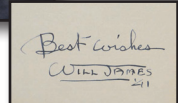 Best wishes
WILL JAMES
'41